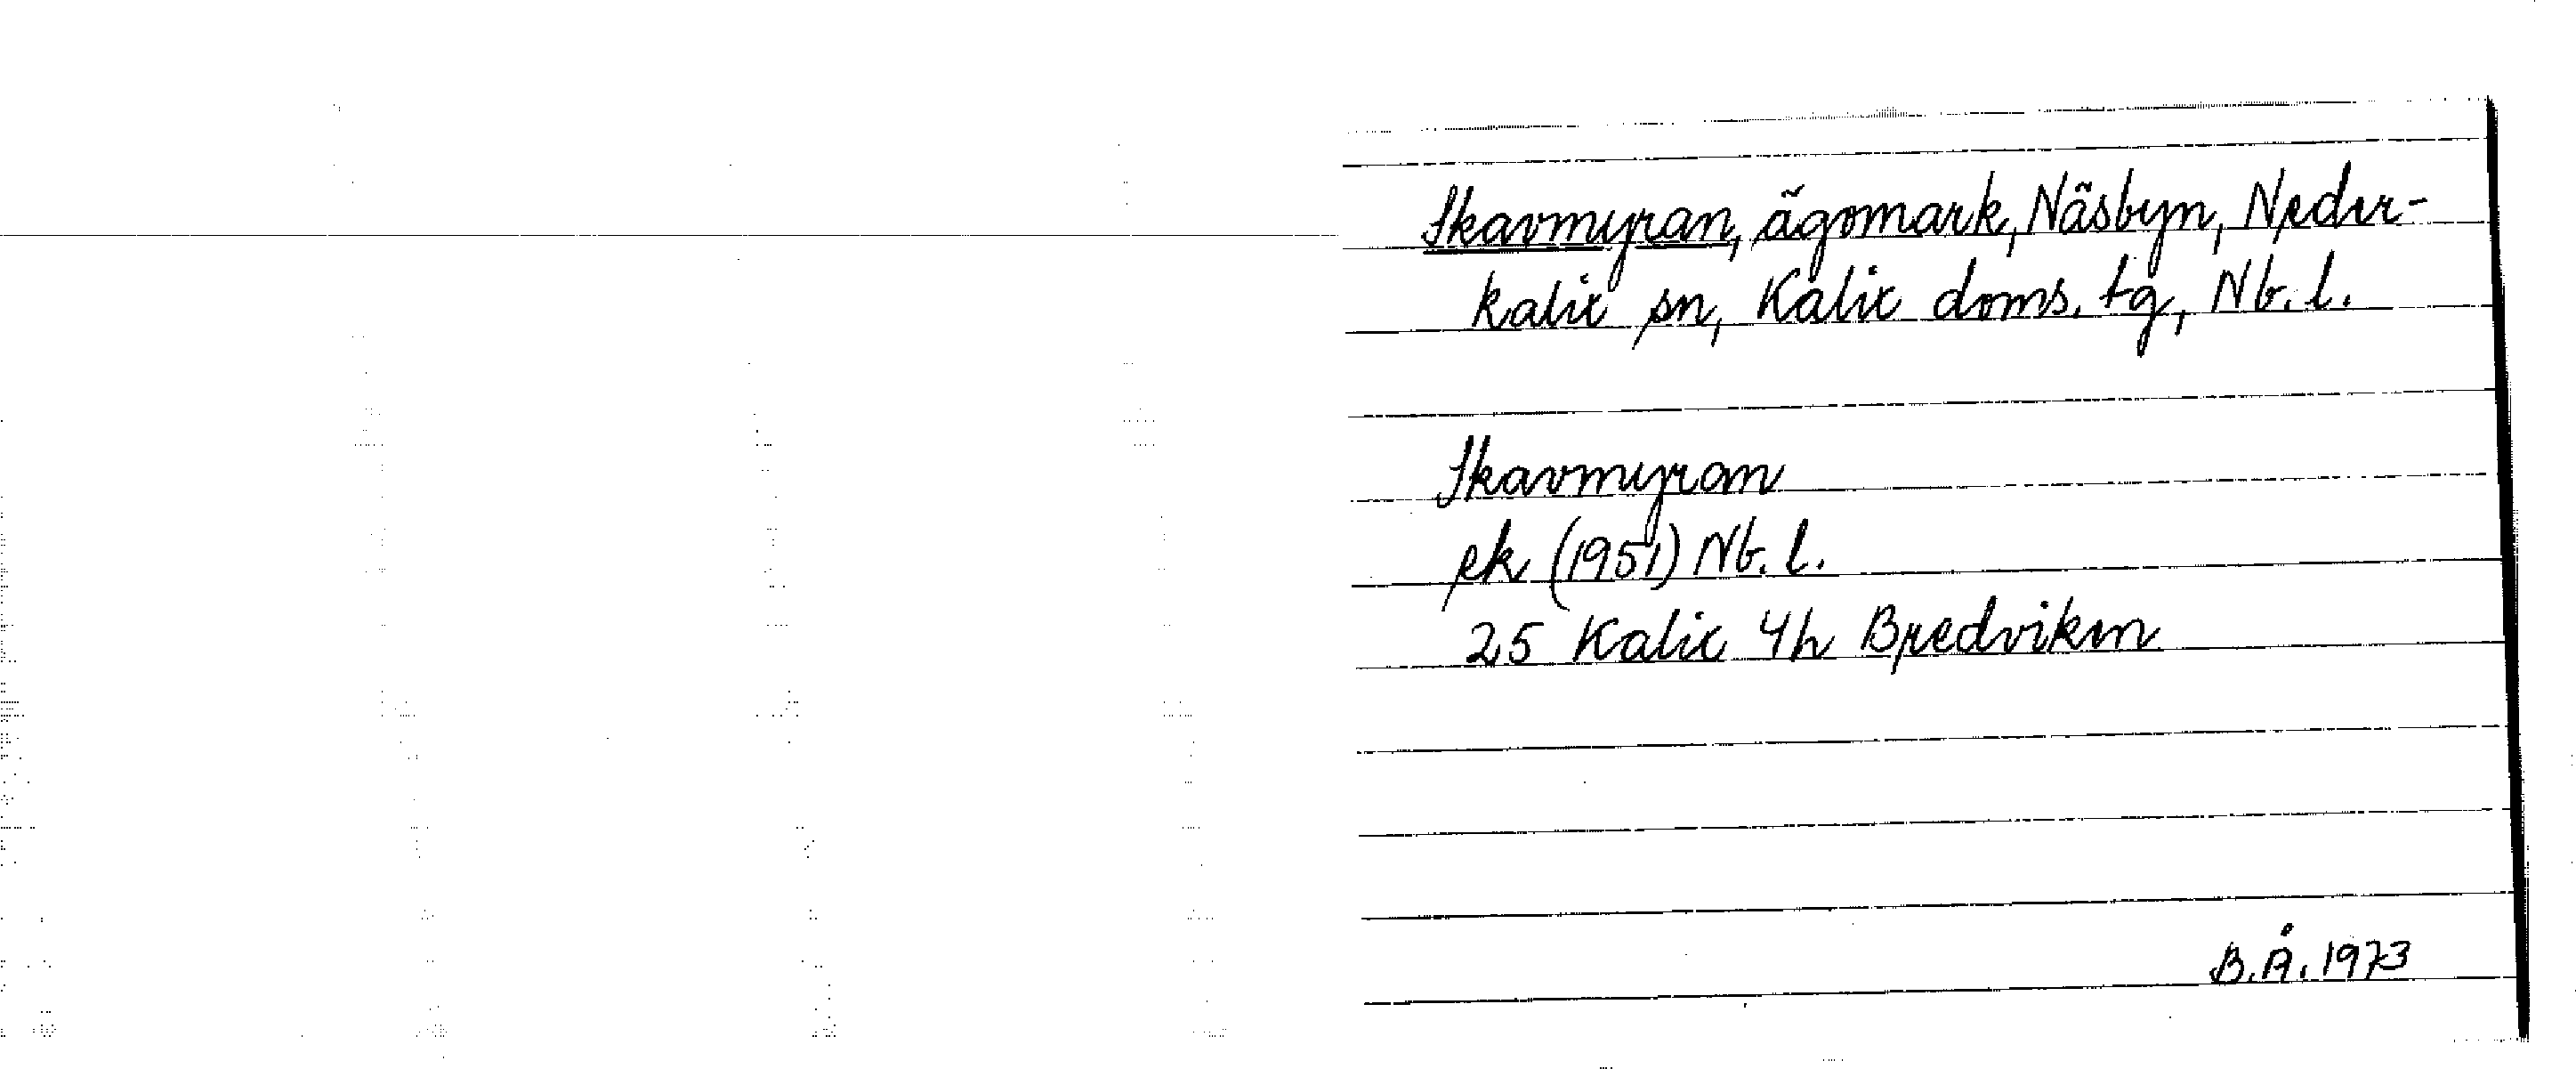 Skavmyran, ägomark, Näsbyn, Neder-
kalix sn, Kalix doms. tg, Nb. l.
Skavmyran
ek (1951) Nb. l.
25 Kalix 4h Bredviken
B.Å. 1973